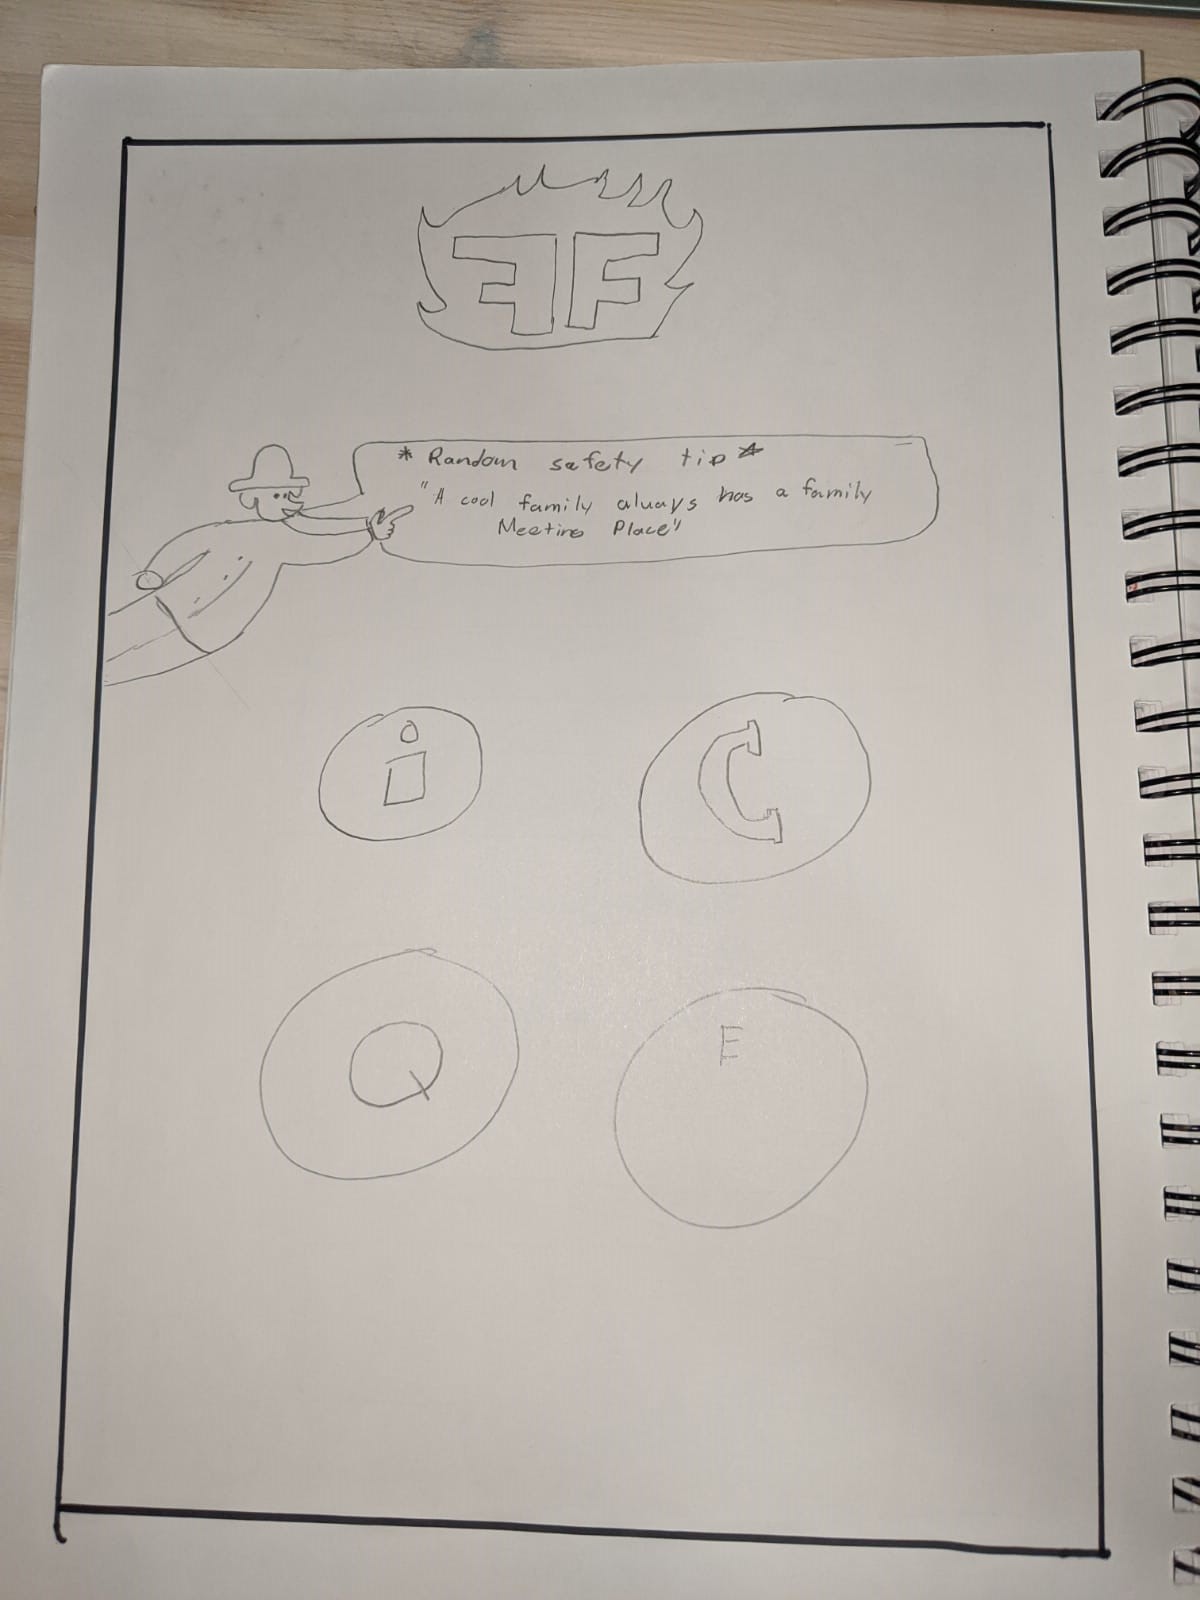 FF
* Random safety tip *
"A cool family always has a family
Meeting Place"
i
Q
E